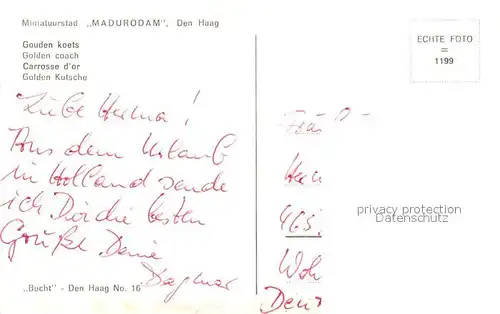 Miniatuurstad „MADURODAM", Den Haag
Gouden koets
Golden coach
Carrosse d'or
Golden Kutsche
ECHTE FOTO
=
1199
Liebe Helma!
Aus dem Urlaub
in Holland sende
ich Dir die besten
Grüße. Deine
Dagmar
„Bucht" - Den Haag No. 16
465
privacy protection
Datenschutz